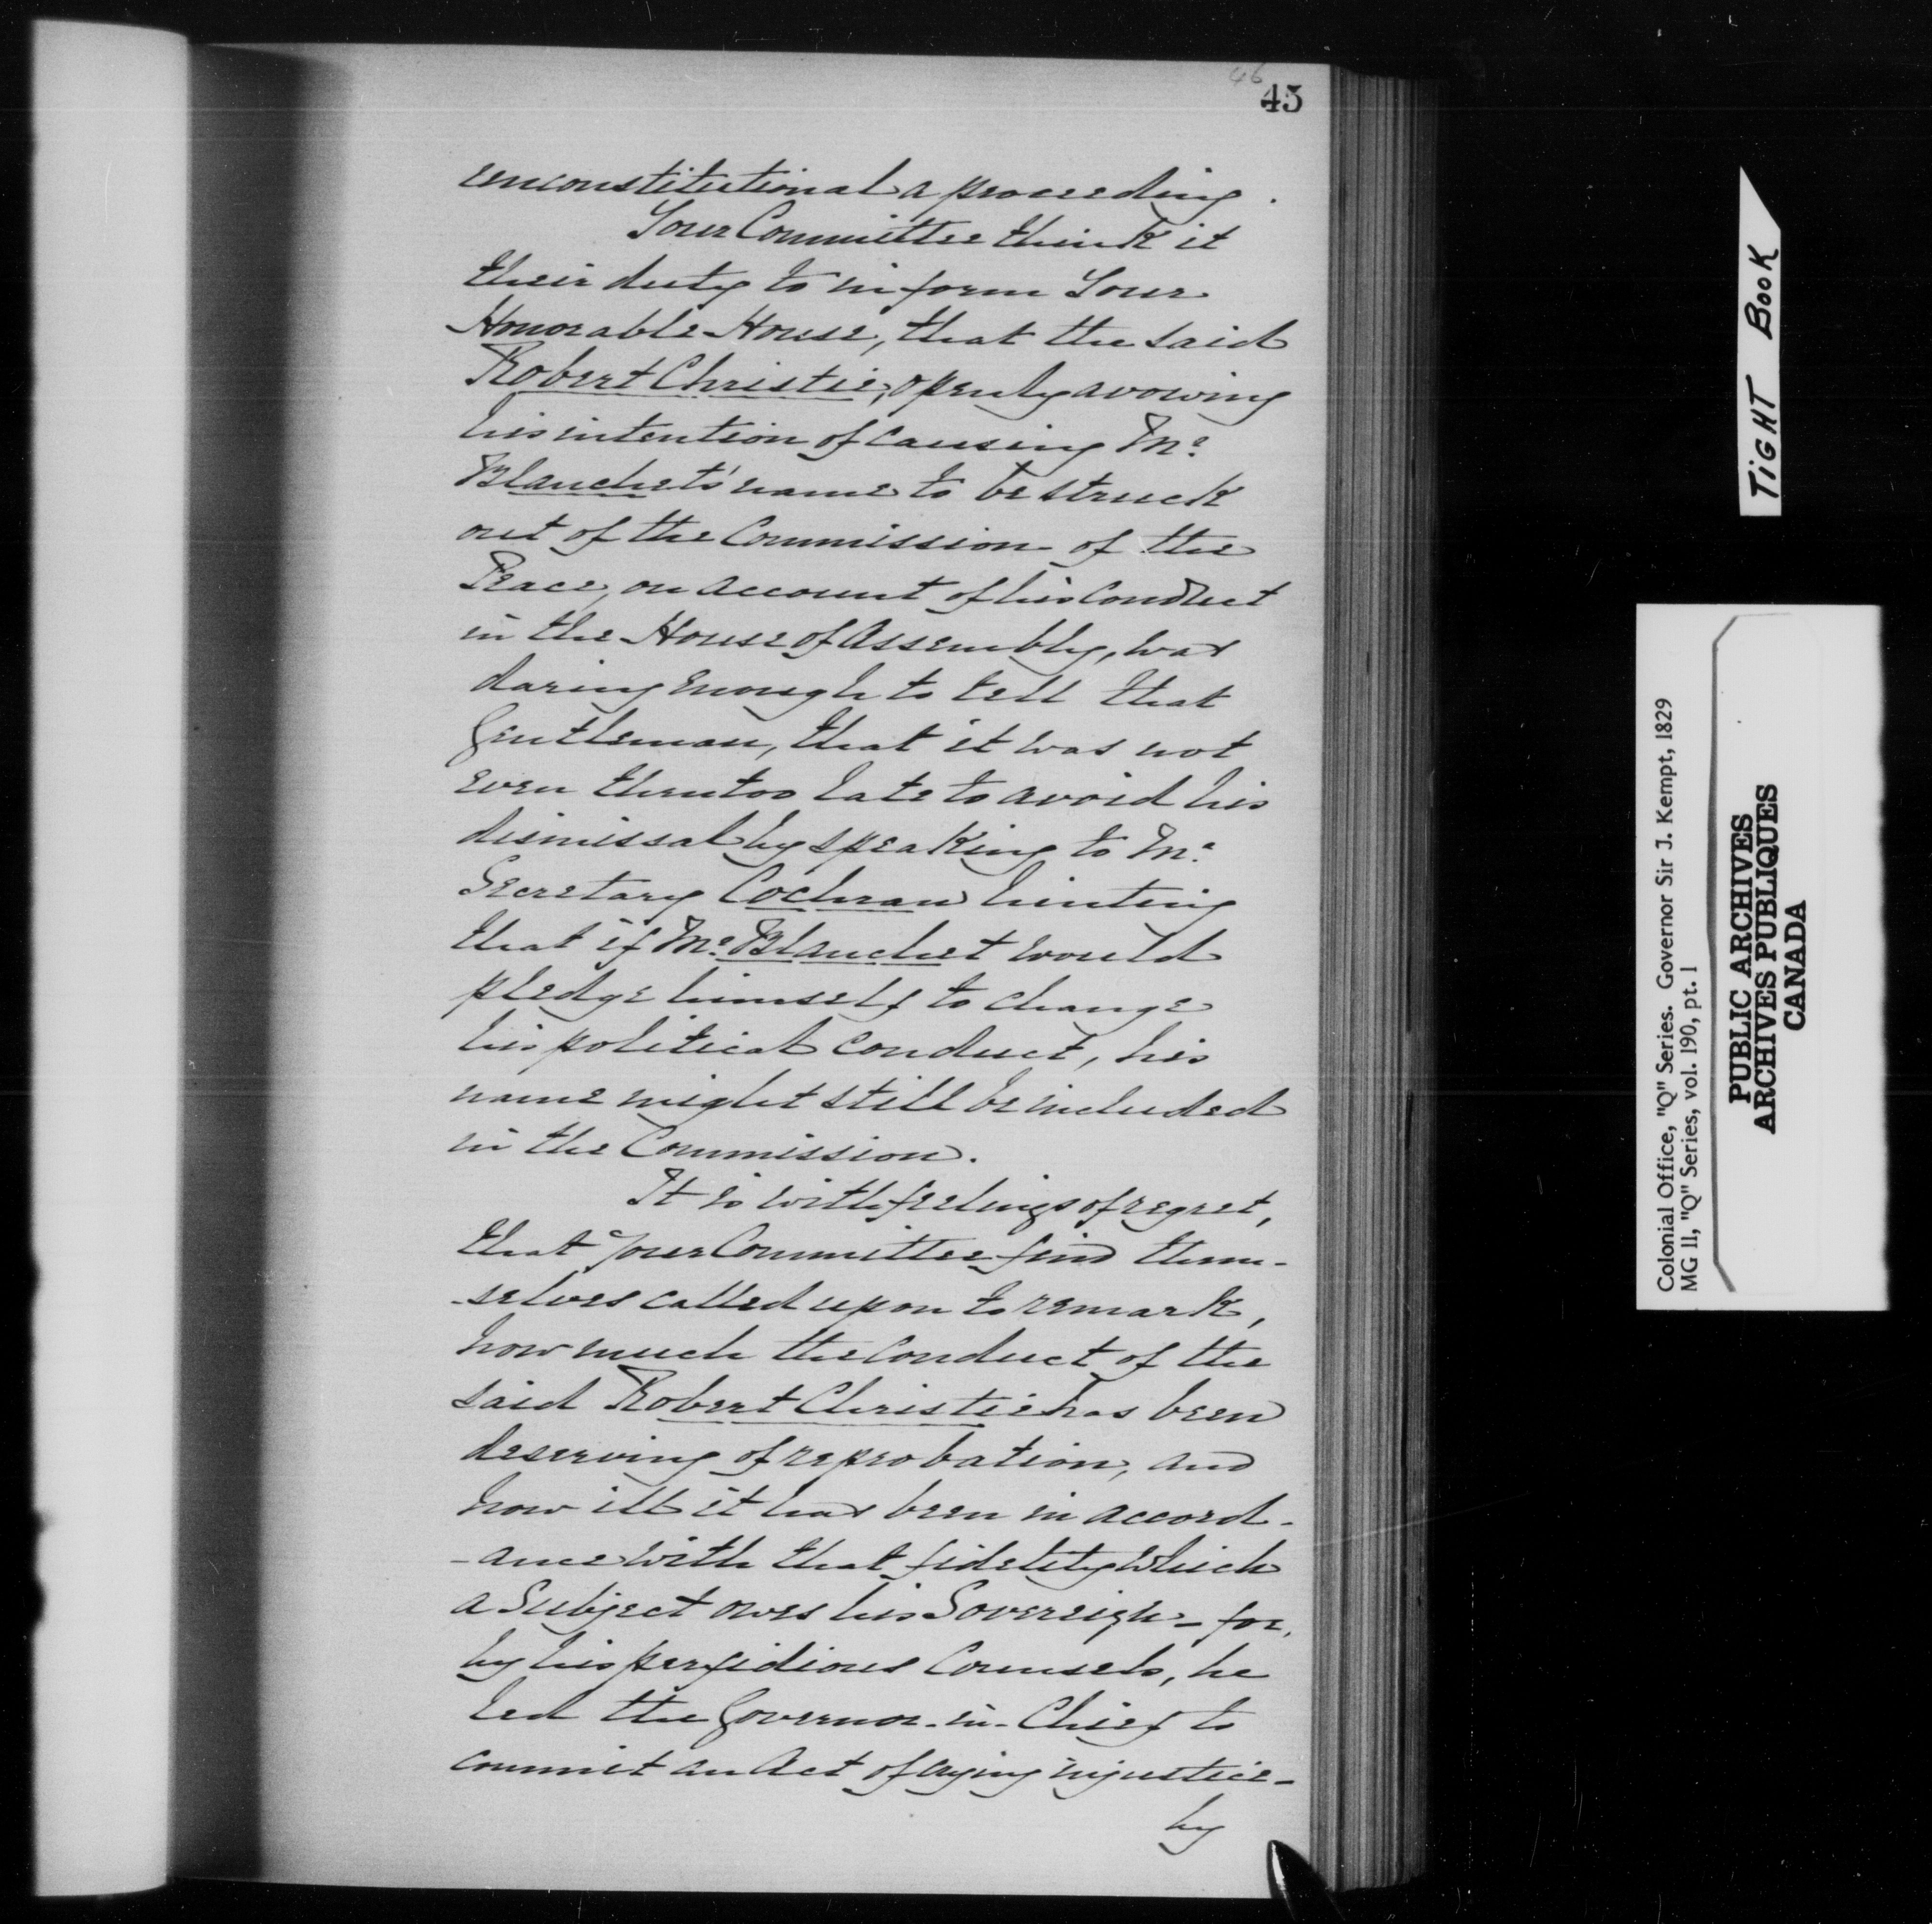 46
45
unconstitutional a proceeding.
Your Committee think it
their duty to inform Your
Honorable House, that the said
Robert Christie, openly avowing
his intention of causing Mr
Blanchet's name to be struck
out of the Commission of the
Peace, on account of his Conduct
in the House of Assembly, was
daring enough to tell that
Gentleman, that it was not
even then too late to avoid his
dismissal by speaking to Mr
Secretary Cochran hinting
that if Mr Blanchet would
pledge himself to change
his political conduct, his
name might still be included
in the Commission.
It is with feelings of regret,
that your Committee find them-
-selves called upon to remark,
how much the conduct of the
said Robert Christie has been
deserving of reprobation, and
how ill it has been in accord-
-ance with that fidelity which
a Subject owes his Sovereign - for,
by his perfidious Counsels, he
led the Governor-in-Chief to
commit an Act of crying injustice -
by
TIGHT BOOK
Colonial Office, "Q" Series. Governor Sir J. Kempt, 1829
MG 11, "Q" Series, vol. 190, pt. 1
PUBLIC ARCHIVES
ARCHIVES PUBLIQUES
CANADA